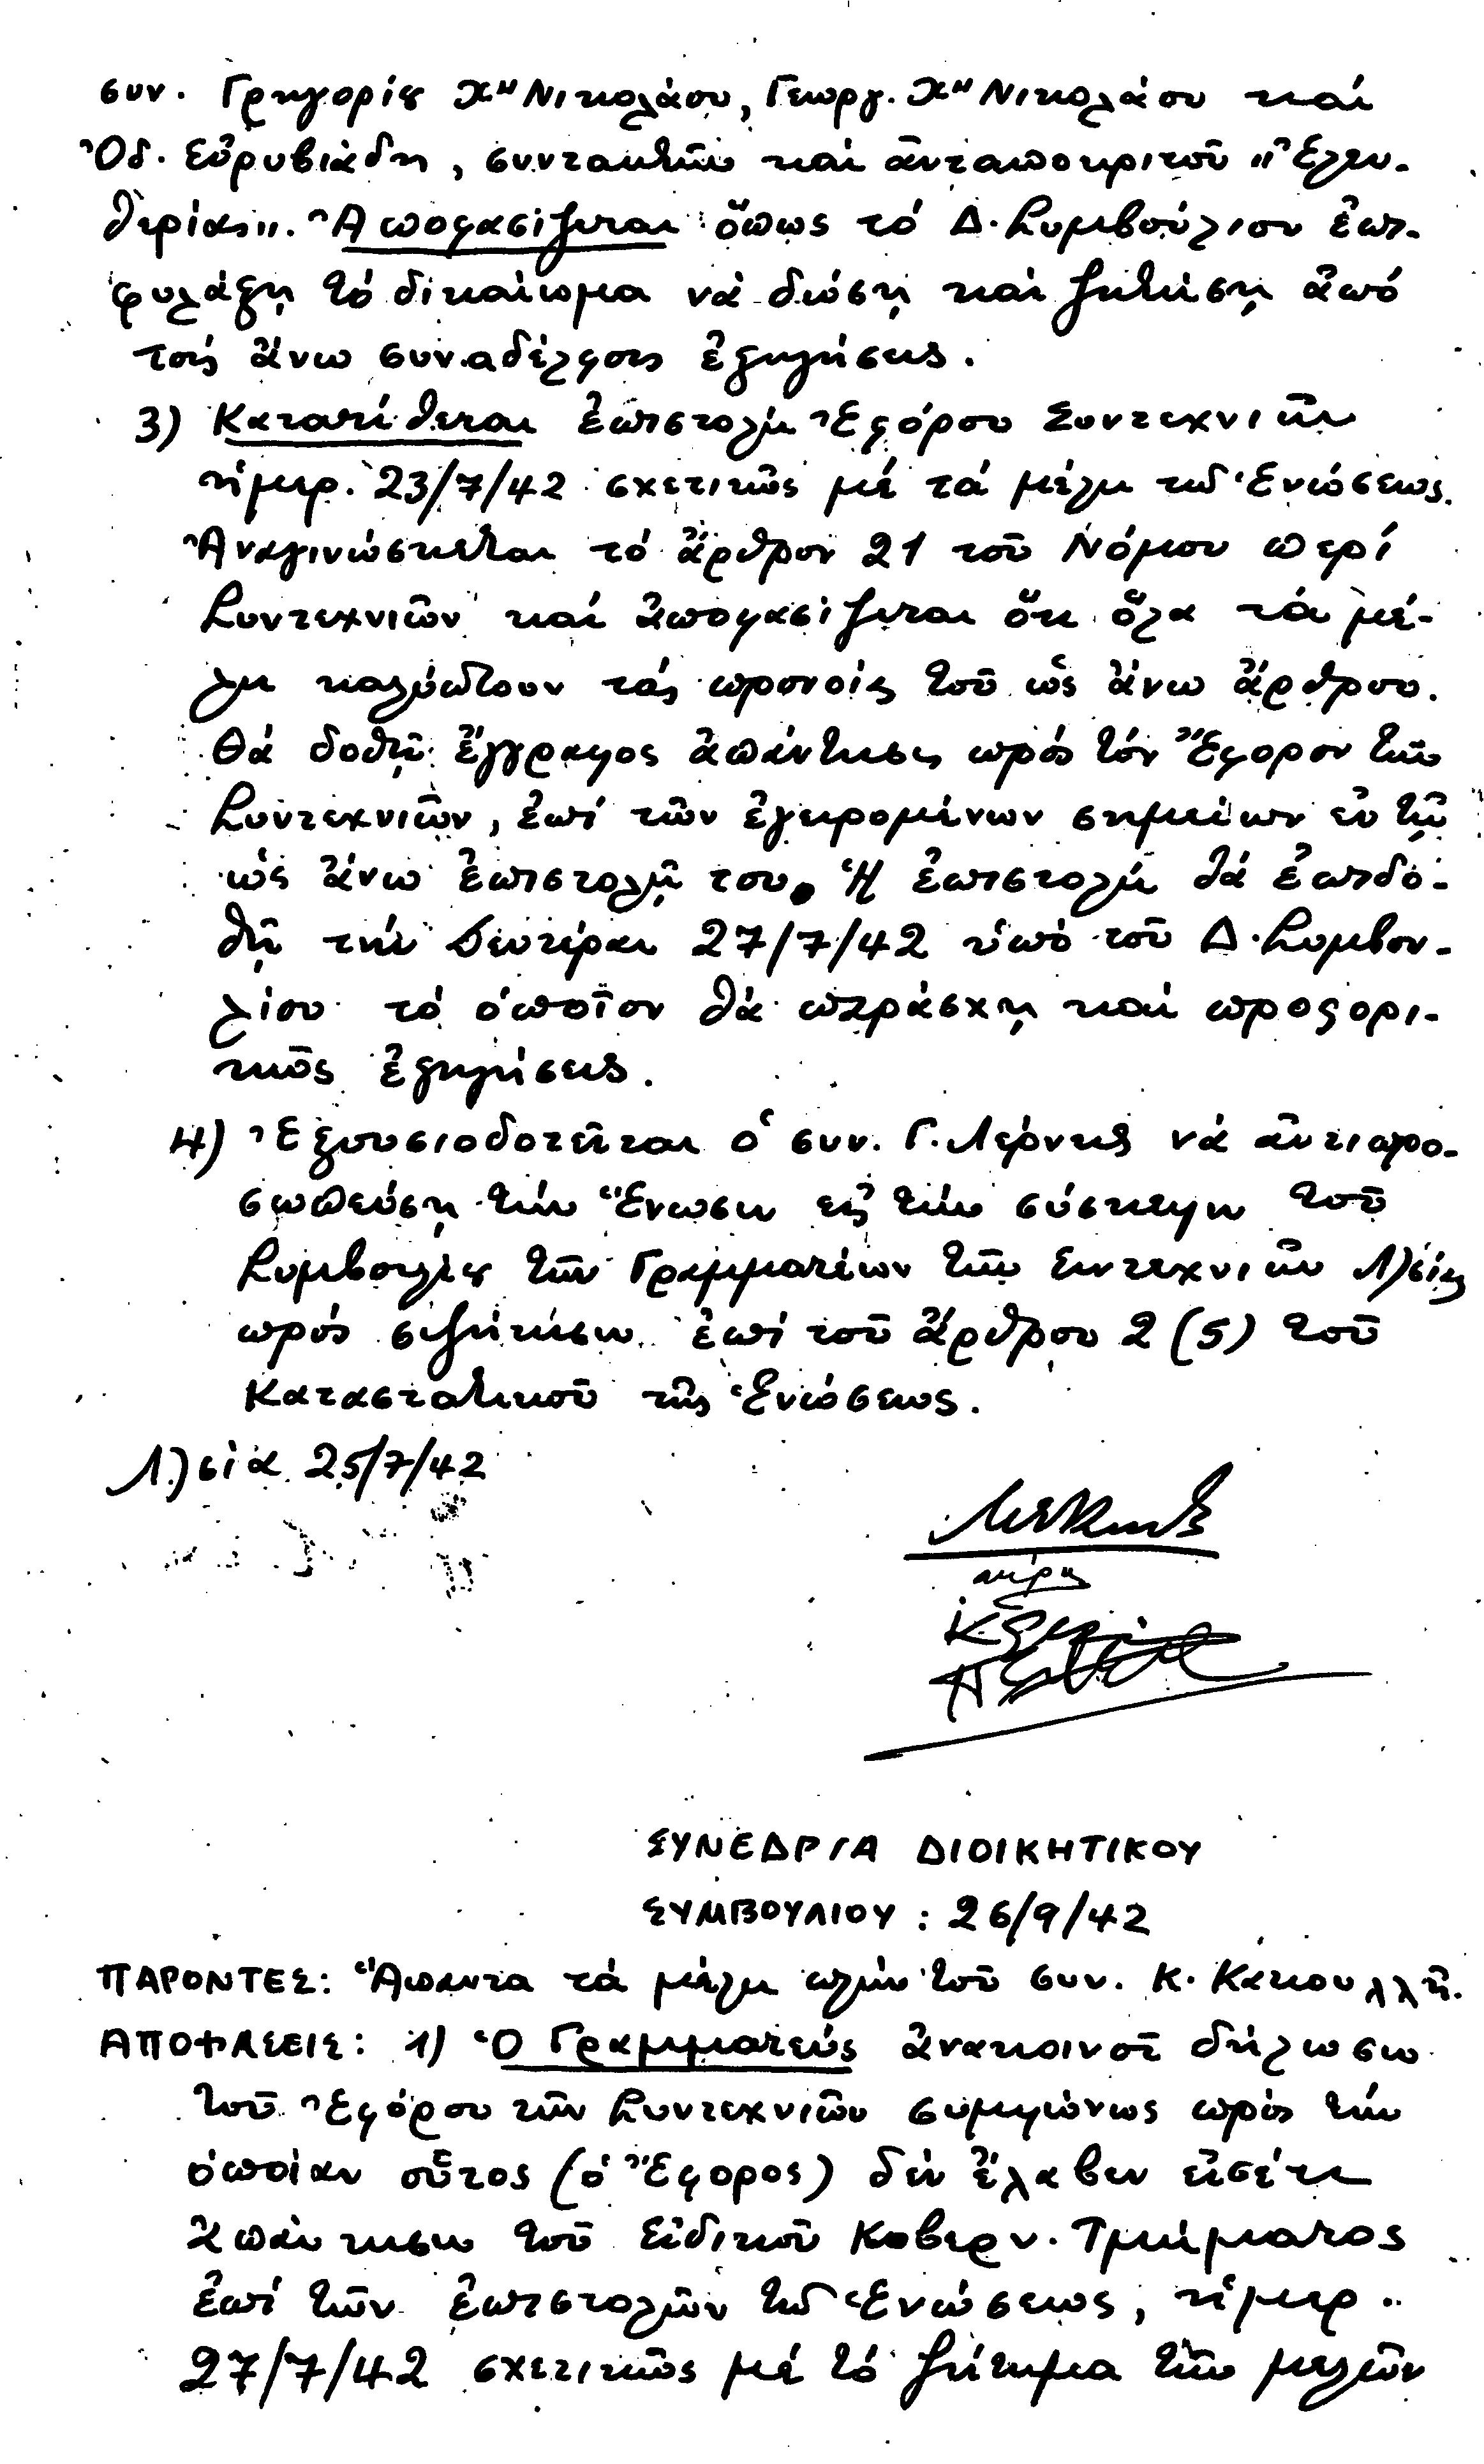 συν. Γρηγορίου Χ" Νικολάου, Γεωργ. Χ" Νικολάου καί
Ὀδ. Εὐρυβιάδη, συντακτῶν καί ἀνταποκριτοῦ "Ἐλευ-
θερίας". Ἀποφασίζεται ὅπως τό Δ. Συμβούλιον ἐπι-
φυλάξῃ τό δικαίωμα νά δώσῃ καί ζητήσῃ ἀπό
τούς ἄνω συναδέλφους ἐξηγήσεις.
3) Κατατίθεται ἐπιστολή Ἐφόρου Συντεχνιῶν
ἡμερ. 23/7/42 σχετικῶς μέ τά μέλη τῆς Ἑνώσεως.
Ἀναγινώσκεται τό ἄρθρον 21 τοῦ Νόμου περί
Συντεχνιῶν καί ἀποφασίζεται ὅτι ὅλα τά μέ-
λη καλύπτουν τάς προνοίας τοῦ ὡς ἄνω ἄρθρου.
Θά δοθῇ ἔγγραφος ἀπάντησις πρός τόν Ἔφορον τῶν
Συντεχνιῶν, ἐπί τῶν ἐγειρομένων σημείων ἐν τῇ
ὡς ἄνω ἐπιστολῇ του. Ἡ ἐπιστολή θά ἐπιδο-
θῇ τήν Δευτέραν 27/7/42 ὑπό τοῦ Δ. Συμβου-
λίου τό ὁποῖον θά παράσχῃ καί προφορι-
κῶς ἐξηγήσεις.
4) Ἐξουσιοδοτεῖται ὁ συν. Γ. Λέρνης νά ἀντιπρο-
σωπεύσῃ τήν Ἕνωσιν εἰς τήν σύσκεψιν τοῦ
Συμβουλίου τῶν Γραμματέων τῶν Συντεχνιῶν Λ)σίας
πρός συζήτησιν ἐπί τοῦ ἄρθρου 2 (5) τοῦ
Καταστατικοῦ τῆς Ἑνώσεως.
Λ)σία 25/7/42
ΣΥΝΕΔΡΙΑ ΔΙΟΙΚΗΤΙΚΟΥ
ΣΥΜΒΟΥΛΙΟΥ : 26/9/42
ΠΑΡΟΝΤΕΣ: Ἅπαντα τά μέλη πλήν τοῦ συν. Κ. Κακουλλῆ.
ΑΠΟΦΑΣΕΙΣ: 1) Ὁ Γραμματεύς ἀνακοινοῖ δήλωσιν
τοῦ Ἐφόρου τῶν Συντεχνιῶν συμφώνως πρός τήν
ὁποίαν οὗτος (ὁ Ἔφορος) δέν ἔλαβεν εἰσέτι
ἀπάντησιν τοῦ Εἰδικοῦ Κυβερν. Τμήματος
ἐπί τῶν ἐπιστολῶν τῆς Ἑνώσεως, ἡμερ.
27/7/42 σχετικῶς μέ τό ζήτημα τῶν μελῶν